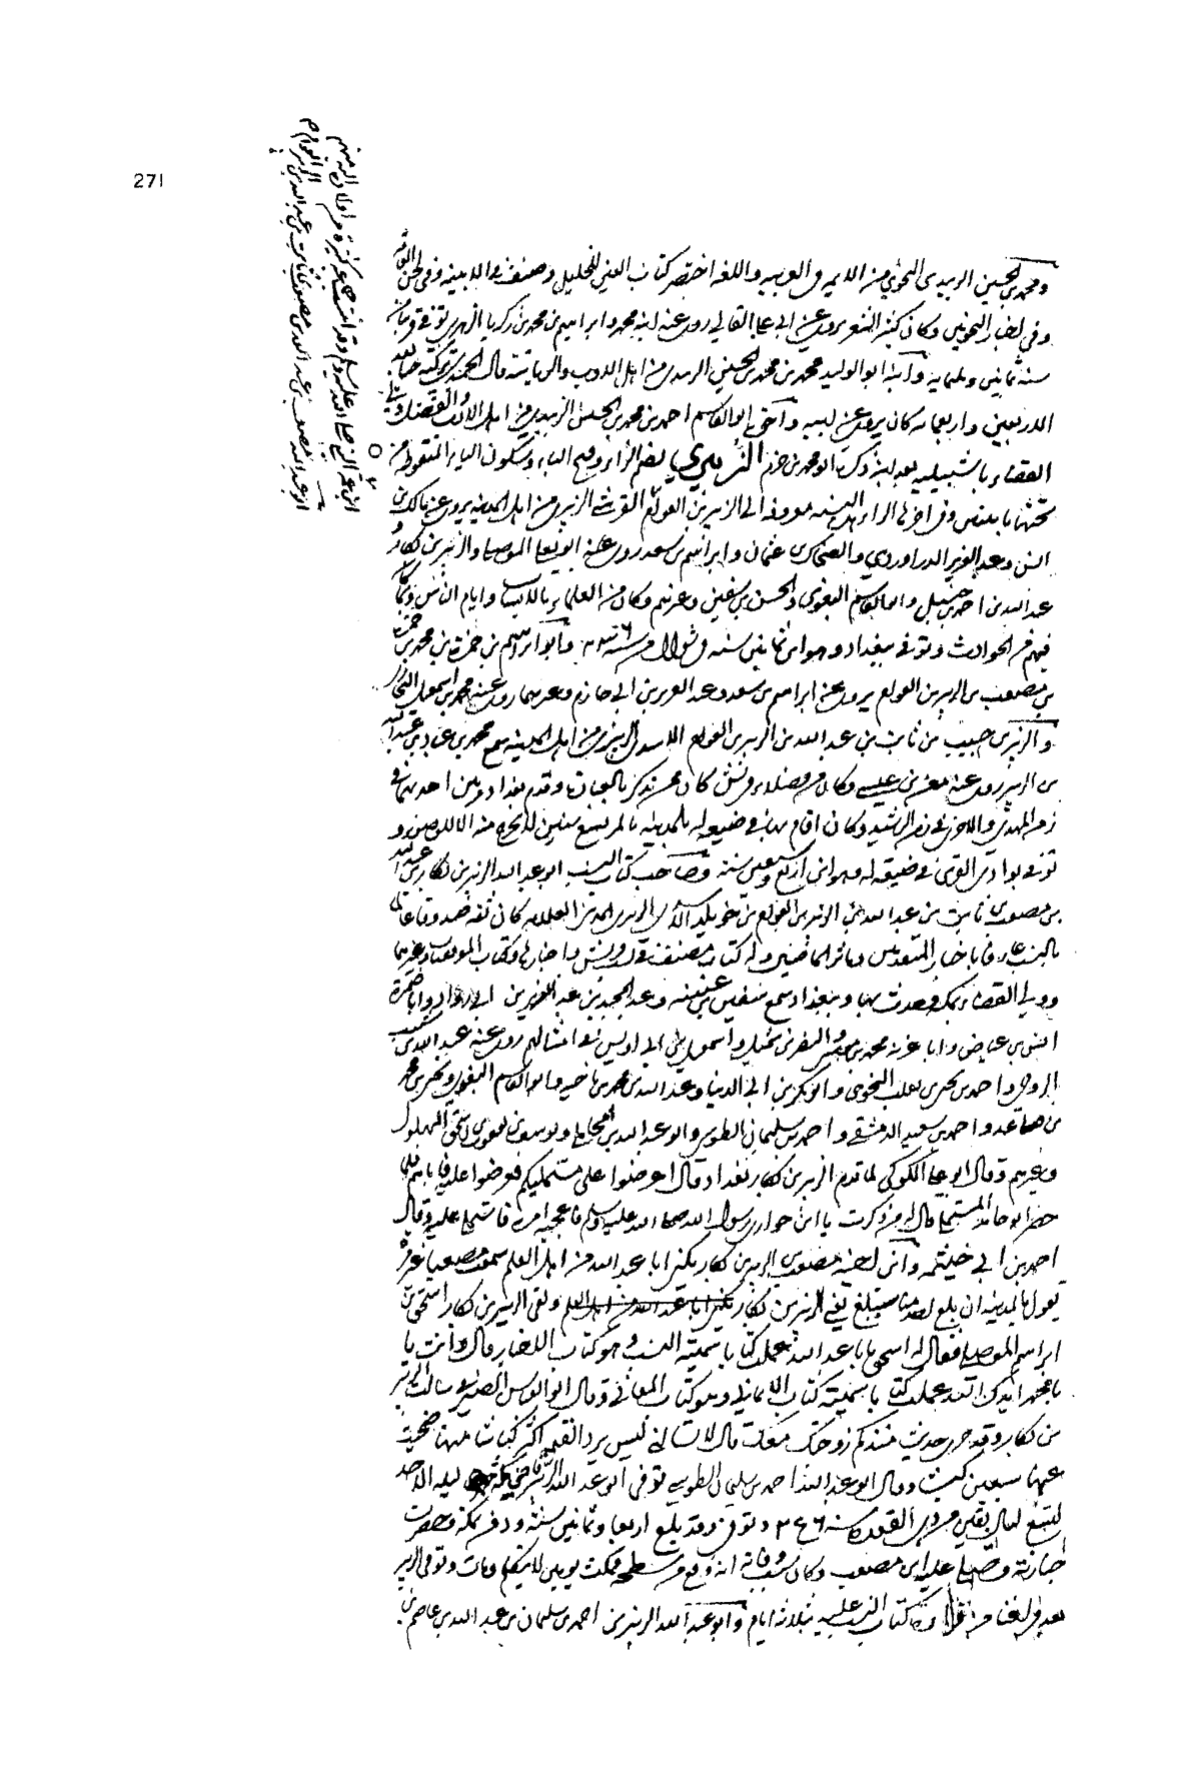 271
ومحمد بن الحسين الزبيدى النحوي من الائمه فى العربيه واللغه اختصر كتاب العين للخليل وصنف فى الابنيه وفى لحن العامه
وفى اخبار النحويين وكان كثير الشعر يروى عن ابى على القالي روى عنه ابنه محمد وابراهيم بن محمد بن زكريا الزهري توفى قريبا من
سنة ثمانين وثلثمايه وابنه ابو الوليد محمد بن محمد بن الحسين الزبيدى من اهل الادب والرياسة قال الحميدى تركته حيا بعد
الاربعين واربعمايه كان يروى عن ابيه وآخى ابو القاسم احمد بن محمد بن الحسين الزبيدى من اهل الادب والفضل ولى
القضاء باشبيليه بعد ابيه ذكره ابو محمد بن حزم الزُّبيري بضم الزاء وفتح الباء وسكون الياء المنقوطة من
تحتها باثنتين وفى اخرها الراء هذه النسبه معروفه الى الزبير بن العوام القرشى الزبيرى من اهل المدينه يروى عن مالك بن
انس وعبد العزيز الدراوردي والضحاك بن عثمان وابراهيم بن سعد روى عنه ابو يعلى الموصلى والزبير بن بكار و
عبد الله بن احمد بن حنبل وابو القاسم البغوى والحسن بن سفين وغيرهم وكان من العلماء بالانساب وايام الناس
فيهم من الحوادث وتوفى ببغداد وهو ابن ثمانين سنه فى شوال من سنة ٢٣٦ وابو ابراهيم بن حمزة بن محمد بن حمزة
بن مصعب بن الزبير بن العوام يروى عن ابراهيم بن سعد وعبد العزيز بن ابى حازم وغيرهما روى عنه محمد بن اسمعيل البخارى
والزبير بن خبيب بن ثابت بن عبد الله بن الزبير بن العوام الاسدى الزبيرى من اهل المدينه سمع محمد بن عباد بن عبد الله
بن الزبير روى عنه معن بن عيسى وكان من فضلاء قريش كان ممن يذكر بالعبادة وقدم بغداد مرتين احديهما فى
زمن المهدى والاخرى فى زمن الرشيد وكان اقام بها فى ضيعه له بالمدينه بالمريسيع سنين لا يخرج منه الا للوضوء و
توفى بوادى القرى فى ضيعه له وهو ابن اربع وسبعين سنة وصاحب كتاب النسب ابو عبد الله الزبير بن بكار بن عبد الله
بن مصعب بن ثابت بن عبد الله بن الزبير بن العوام بن خويلد الاسدى الزبيرى المدينى العلامه كان ثقه صدوقا عالما
بالنسب عارفا باخبار المتقدمين وماثر الماضين وله كتاب مصنف فى نسب قريش واخبارها وكتاب الموفقيات وغيرهما
وولى القضاء بمكة وحدث بها وببغداد سمع سفين بن عيينه وعبد المجيد بن عبد العزيز بن ابى رواد وابا ضمرة
انس بن عياض وابا غزيه محمد بن موسى والنضر بن شميل واسمعيل بن ابى اويس فى امثالهم روى عنه عبد الله بن شبيب
الربعى واحمد بن يحيى ثعلب النحوى وابو بكر بن ابى الدنيا وعبد الله بن محمد بن ناجيه وابو القاسم البغوى ويحيى بن محمد
بن صاعد واحمد بن سعيد الدمشقى واحمد بن سليمان الطوسى وابو عبد الله بن المحاملى ويوسف بن يعقوب بن اسحق البهلول
وغيرهم وقال ابو على الكوكبى لما قدم الزبير بن بكار بغداد قال اعرضوا على مستمليكم فعرضوا عليه فاباهم فلما
حضر ابو حامد المستملى قال له من ذكرت يا ابن حوارى رسول الله صلى الله عليه وسلم فاعجبه امره فاستملى عليه وقال
احمد بن ابى خيثمه وابن اخيه مصعب الزبير بن بكار يكنى ابا عبد الله من اهل العلم سمعت مصعبا غير مرة
يقول بالمدينه ان بلغ احد منا سيبلغ يعنى الزبير بن بكار ولقى الزبير بن بكار اسحق بن
ابراهيم الموصلى فقال له اسحق يا ابا عبد الله عملت كتابا سميته النسب وهو كتاب الاخبار قال وانت يا
با محمد ايدك الله عملت كتابا سميته كتاب الاغانى وهو كتاب المعانى وقال ابو العباس الصيرفى سالت الزبير
بن بكار وقد جرى حديث منذ كم زوجتك معك قال لا تسالنى ليس يرد القيمه اكثر كباشا منها ضحيت
عنها سبعين كبشا وقال ابو عبد الله احمد بن سليمان الطوسى توفى ابو عبد الله الزبير قاضى مكة ليله الاحد
لتسع ليال بقين من ذى القعده سنه ٢٥٦ وتوفى وقد بلغ اربعا وثمانين سنة ودفن بمكة وحضرت
جنازته وصلى عليه ابنه مصعب وكان سبب وفاته انه وقع من سطحه فمكث يومين لا يتكلم ومات وتوفى الزبير
بعد فراغنا من قراءة كتاب النسب عليه بثلاثة ايام وابو عبد الله الزبير بن احمد بن سليمان بن عبد الله بن عاصم بن